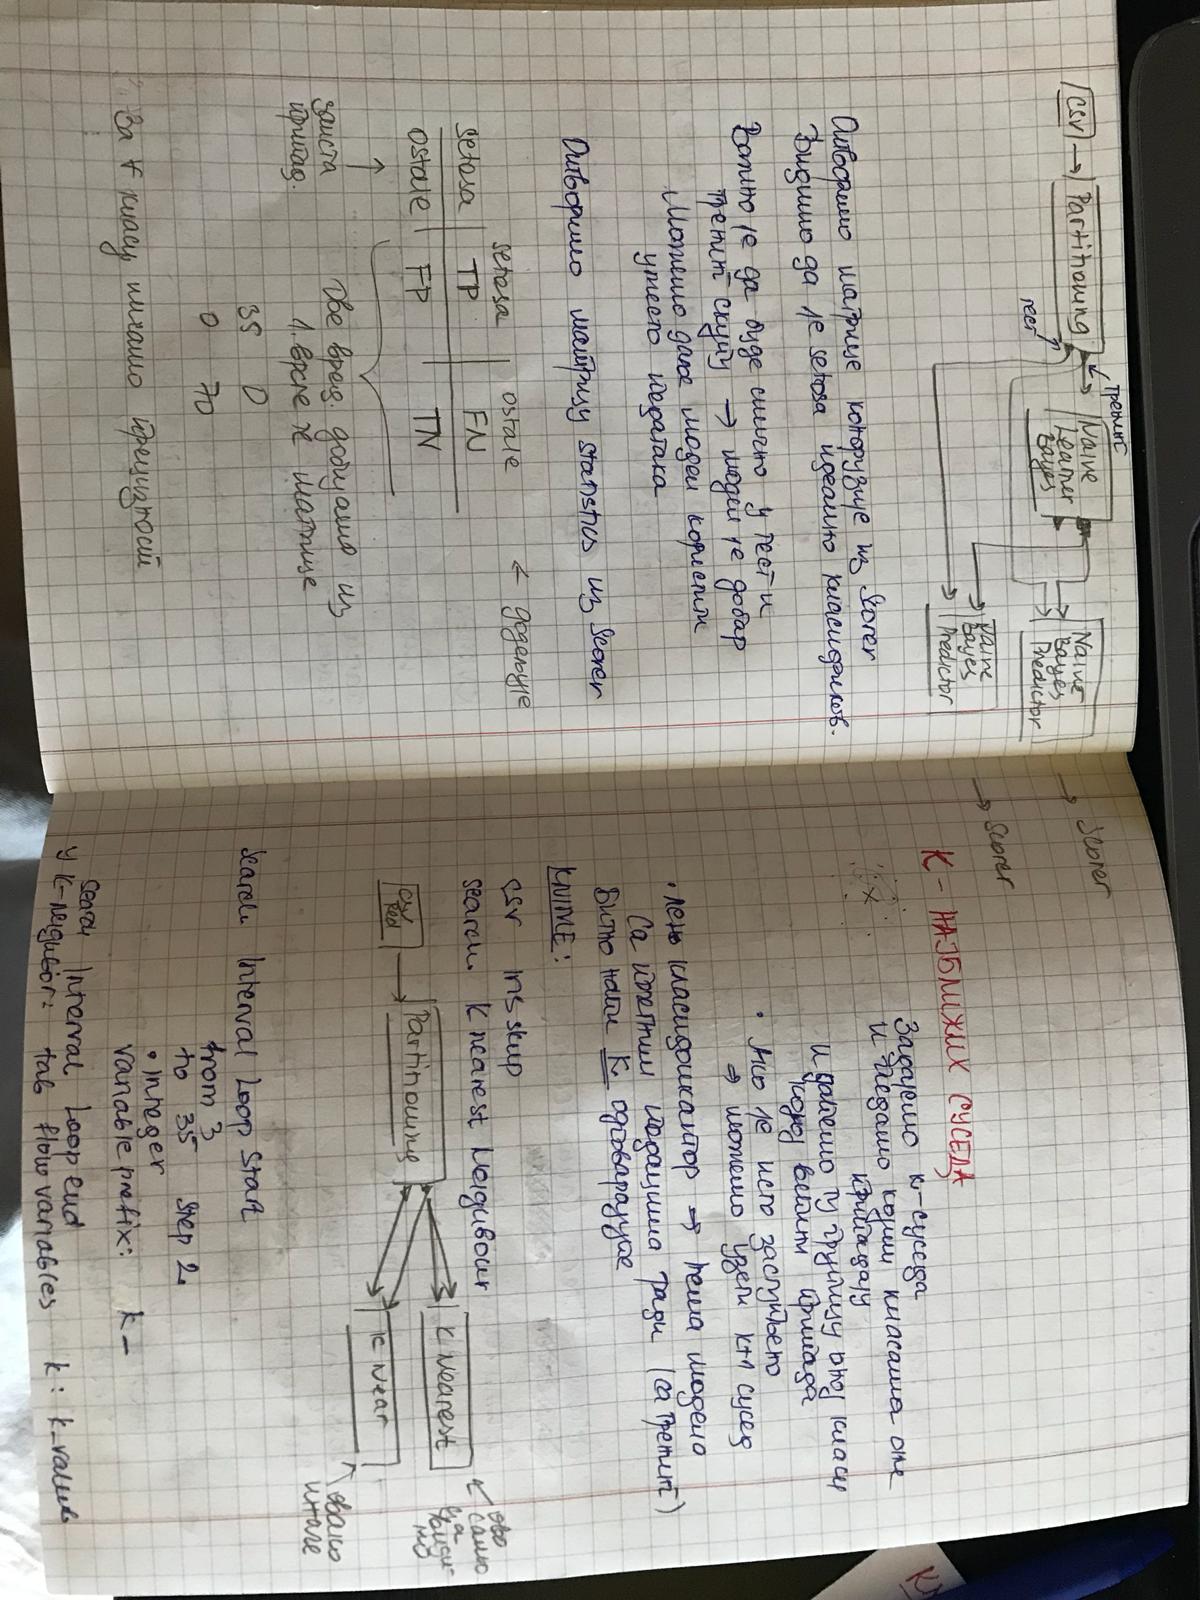 csv → Partitioning
тренинг
тест
Naive
Learner
Bayes
Naive
Bayes
Predictor
Naive
Bayes
Predictor
Отворимо матрице конфузије из Scorer
Видимо да је setosa идеално класификов.
Битно је да буде слично у тест и
тренинг скупу → модел је добар
Можемо даље модел користити
уместо података
Отворимо матрицу statistics из Scorer
setosa | ostale ← додељује
setosa TP FN
ostale FP TN
↑
заиста
припад.
Две вред. добијамо из
1. врсте матрице
35 0
0 70
За ∀ класу имамо прецизност
→ Scorer
→ Scorer
К-НАЈБЛИЖИХ СУСЕДА
x
Задајемо к-суседа
и гледамо којим класама оне
припадају
и враћамо ту групицу оној класи
којој већини припада
• Ако је исто заступљено
⇒ можемо узети к+1 сусед
• лењ класификатор → нема модела
Са истим подацима ради (са тренинг)
Битно наћи K одговарајуће
KNIME:
csv iris skup
search K nearest Neighbour
csv
read
→ Partitioning
K Nearest
K Near
ово
само
за
Search Interval Loop Start
from 3
to 35 step 2
• Integer
variable prefix: k-
search Interval Loop end
у K-neighbor: tab flow variables k: k-value